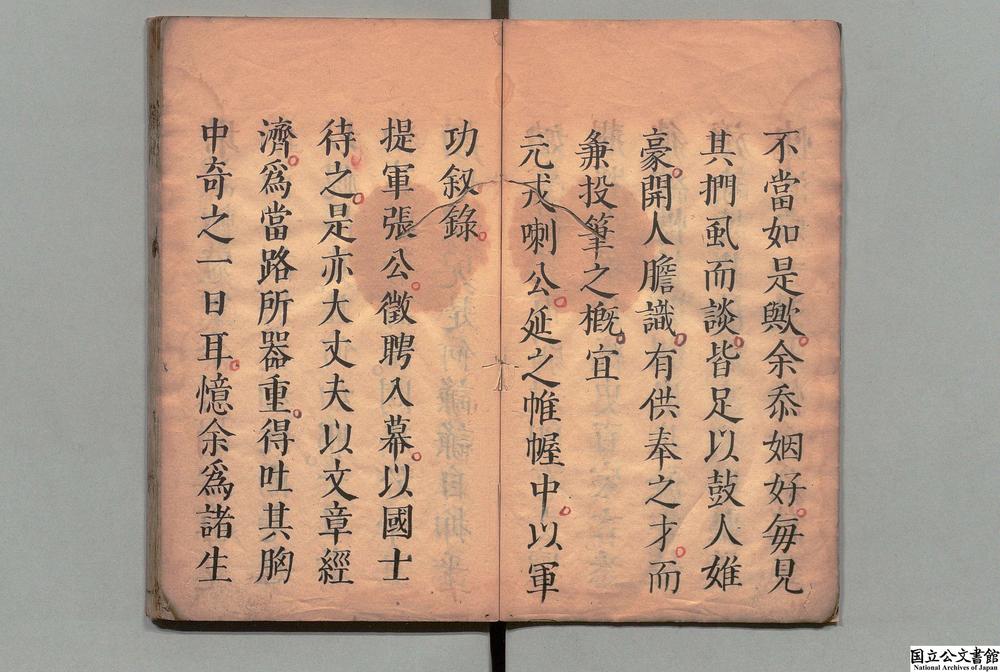 不當如是歟余忝姻好每見
其捫虱而談皆足以鼓人雄
豪開人膽識有供奉之才而
兼投筆之概宜
元戎喇公延之帷幄中以軍
功叙錄
提軍張公徵聘入幕以國士
待之是亦大丈夫以文章經
濟爲當路所器重得吐其胸
中奇之一日耳憶余爲諸生
国立公文書館
National Archives of Japan